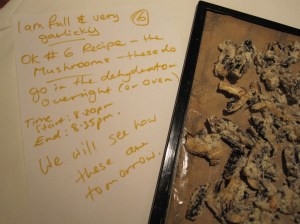 I am full & very
garlicky
6
OK # 6 Recipe - the
Mushrooms - these do
go in the dehydrator
overnight (or oven)
Time
Start: 8:20pm
End: 8:35pm.
We will see how
these are
tomorrow.